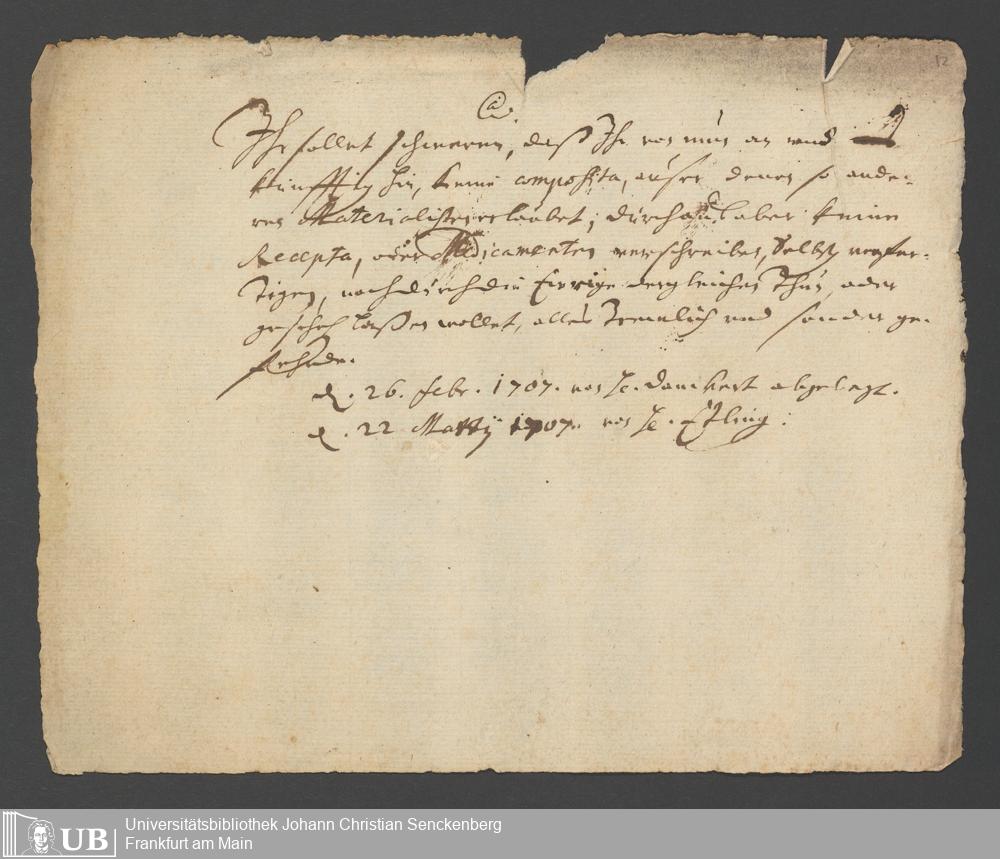 12
Ihr sollet schweren, daß Ihr von nun an und
künfftig hin, keine composita, außer denen so ande-
ren Materialisten erlaubet, durchauß aber keine
Recepta, oder Medicamenten verschreiben, Selbst verfer-
tigen, noch durch die Eurige dergleichen Thun oder
geschehen laßen wollet, alles Treulich und sonder ge-
fehrde.
d. 26. Febr. 1707. von H. Danckert abgelegt.
d. 22 Martij 1707. von H. Etling.
UB
Universitätsbibliothek Johann Christian Senckenberg
Frankfurt am Main